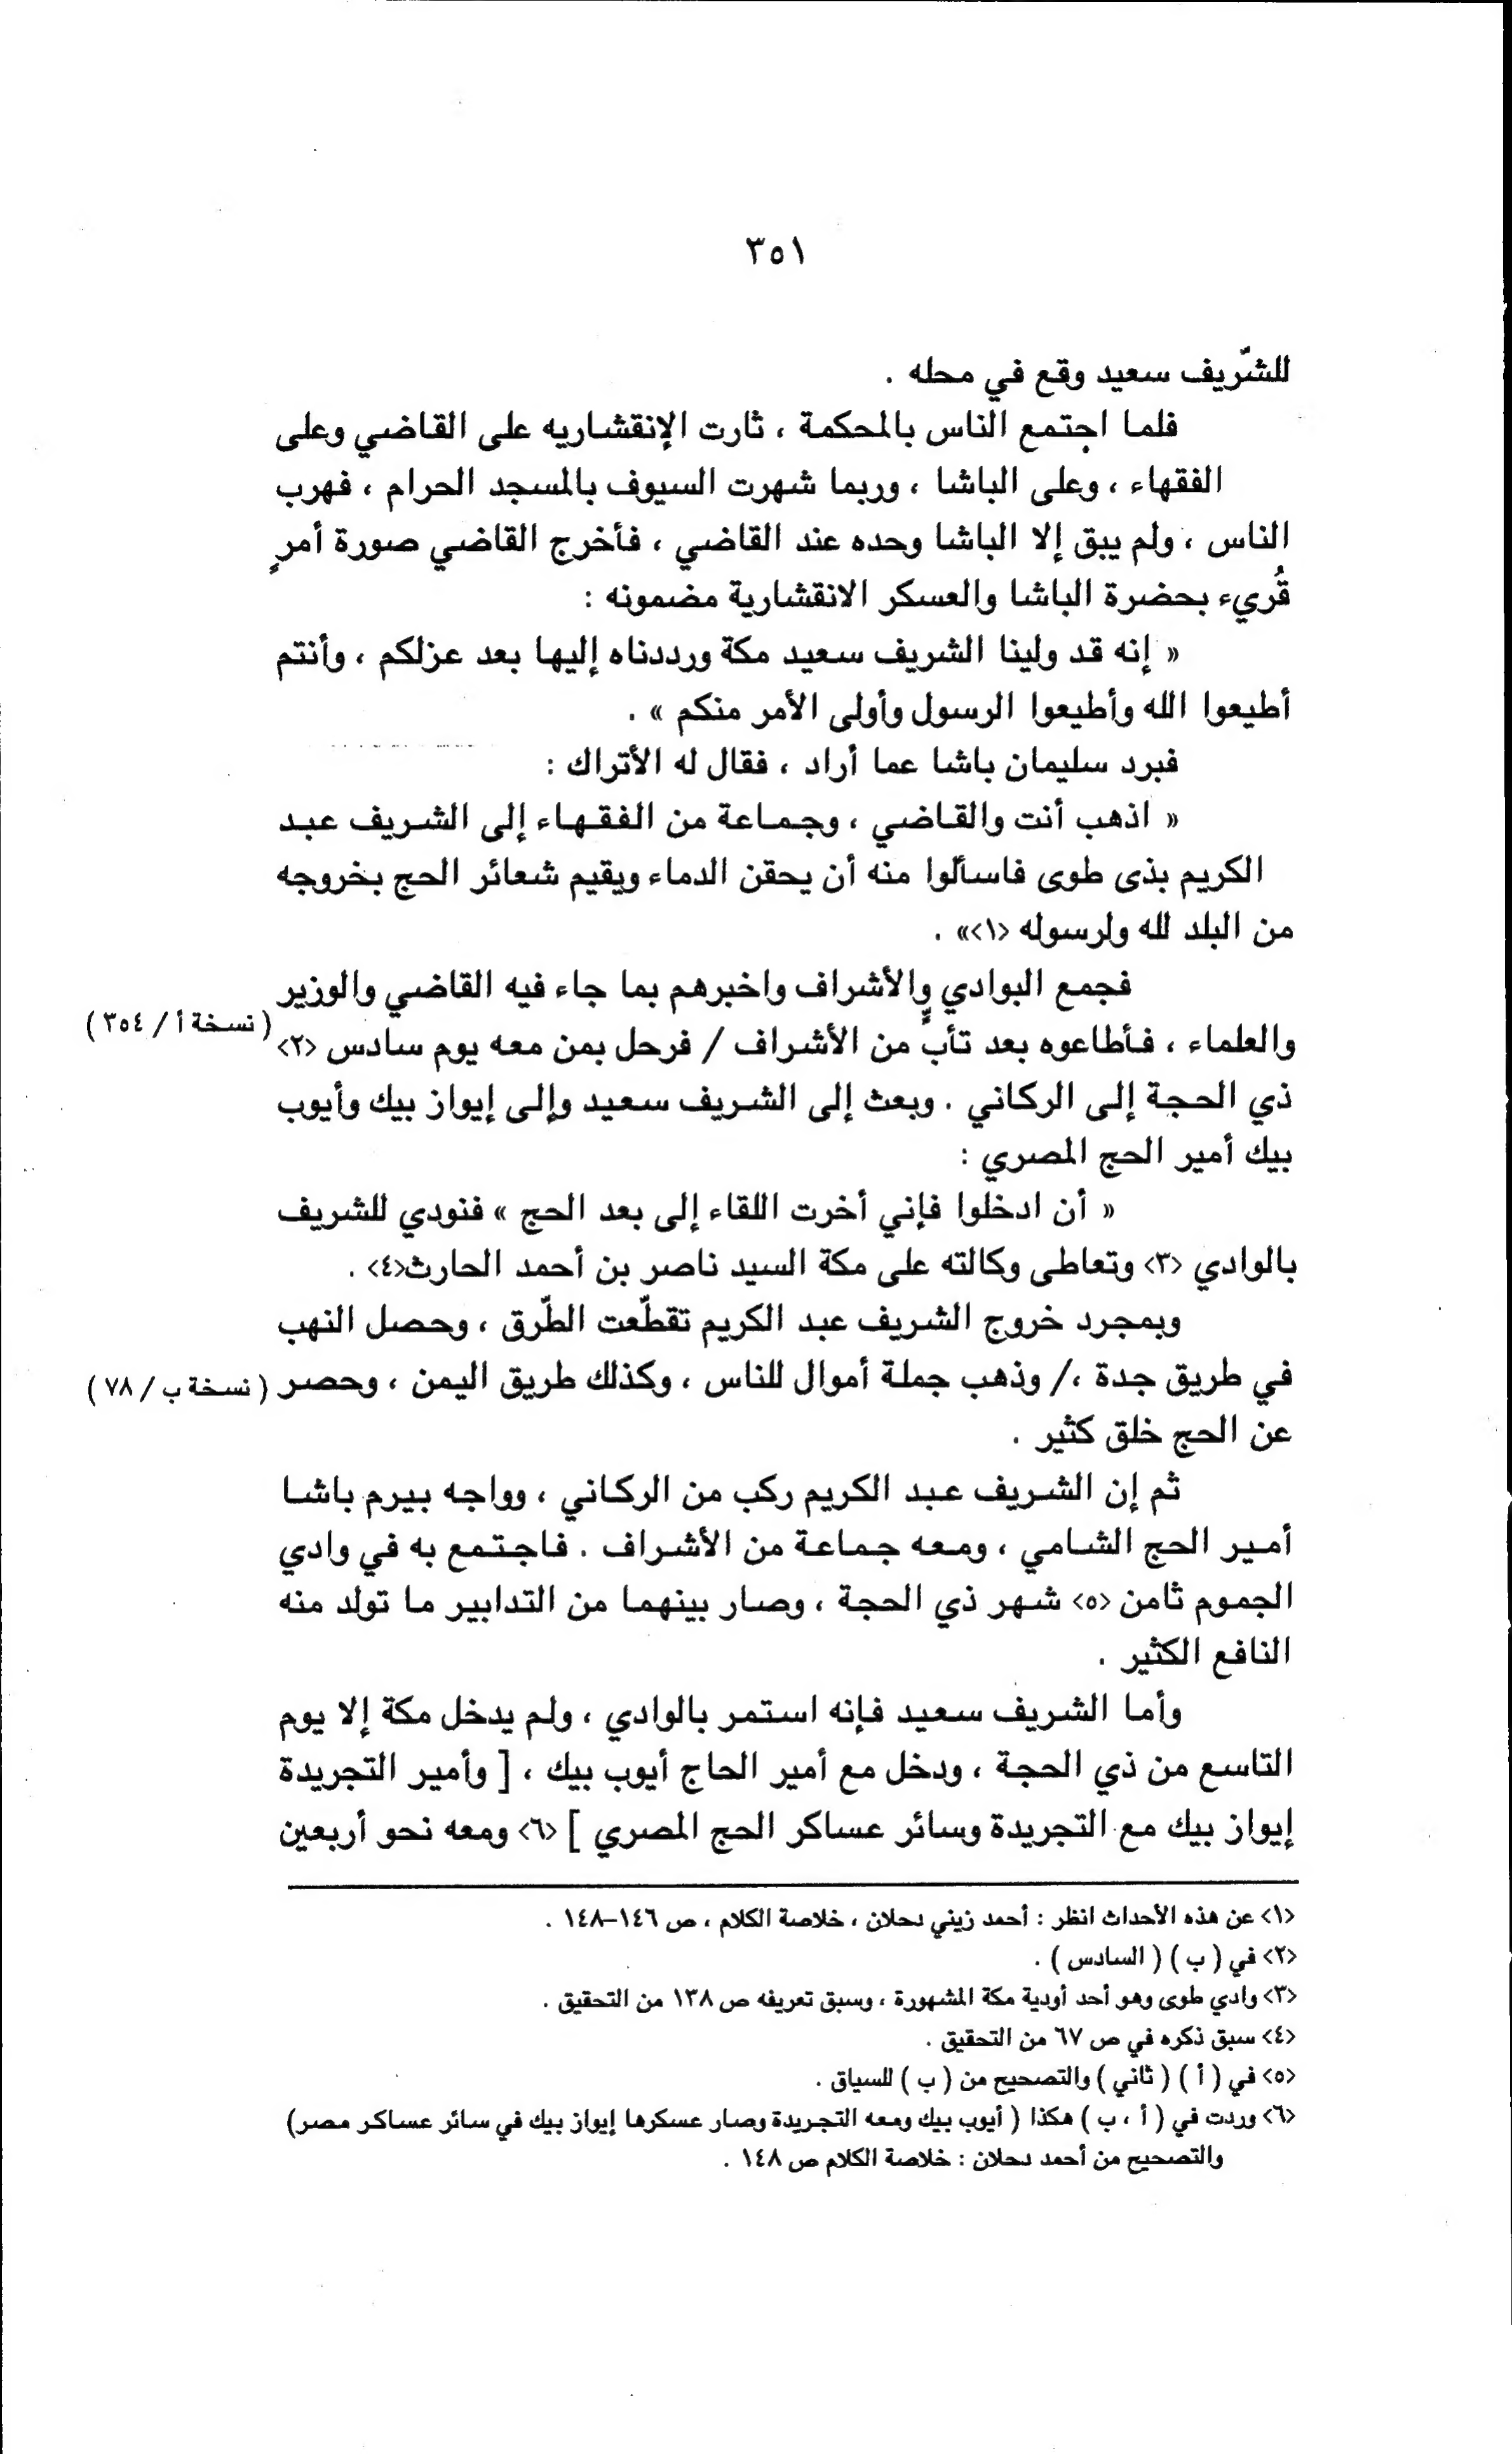 ٣٥١
للشّريف سعيد وقع في محله .
فلما اجتمع الناس بالمحكمة ، ثارت الإنقشاريه على القاضي وعلى
الفقهاء ، وعلى الباشا ، وربما شهرت السيوف بالمسجد الحرام ، فهرب
الناس ، ولم يبق إلا الباشا وحده عند القاضي ، فأخرج القاضي صورة أمرٍ
قُريء بحضرة الباشا والعسكر الانقشارية مضمونه :
« إنه قد ولينا الشريف سعيد مكة ورددناه إليها بعد عزلكم ، وأنتم
أطيعوا الله وأطيعوا الرسول وأولى الأمر منكم » .
فبرد سليمان باشا عما أراد ، فقال له الأتراك :
« اذهب أنت والقاضي ، وجماعة من الفقهاء إلى الشريف عبد
الكريم بذى طوى فاسألوا منه أن يحقن الدماء ويقيم شعائر الحج بخروجه
من البلد لله ولرسوله <١>» .
فجمع البوادي والأشراف واخبرهم بما جاء فيه القاضي والوزير
والعلماء ، فأطاعوه بعد تأبٍّ من الأشراف / فرحل بمن معه يوم سادس <٢> ( نسخة أ / ٣٥٤ )
ذي الحجة إلى الركاني . وبعث إلى الشريف سعيد وإلى إيواز بيك وأيوب
بيك أمير الحج المصري :
« أن ادخلوا فإني أخرت اللقاء إلى بعد الحج » فنودي للشريف
بالوادي <٣> وتعاطى وكالته على مكة السيد ناصر بن أحمد الحارث<٤> .
وبمجرد خروج الشريف عبد الكريم تقطّعت الطّرق ، وحصل النهب
في طريق جدة ،/ وذهب جملة أموال للناس ، وكذلك طريق اليمن ، وحصر ( نسخة ب / ٧٨ )
عن الحج خلق كثير .
ثم إن الشريف عبد الكريم ركب من الركاني ، وواجه بيرم باشا
أمير الحج الشامي ، ومعه جماعة من الأشراف . فاجتمع به في وادي
الجموم ثامن <٥> شهر ذي الحجة ، وصار بينهما من التدابير ما تولد منه
النافع الكثير .
وأما الشريف سعيد فإنه استمر بالوادي ، ولم يدخل مكة إلا يوم
التاسع من ذي الحجة ، ودخل مع أمير الحاج أيوب بيك ، [ وأمير التجريدة
إيواز بيك مع التجريدة وسائر عساكر الحج المصري ] <٦> ومعه نحو أربعين
<١> عن هذه الأحداث انظر : أحمد زيني دحلان ، خلاصة الكلام ، ص ١٤٦–١٤٨ .
<٢> في ( ب ) ( السادس ) .
<٣> وادي طوى وهو أحد أودية مكة المشهورة ، وسبق تعريفه ص ١٣٨ من التحقيق .
<٤> سبق ذكره في ص ٦٧ من التحقيق .
<٥> في ( أ ) ( ثاني ) والتصحيح من ( ب ) للسياق .
<٦> وردت في ( أ ، ب ) هكذا ( أيوب بيك ومعه التجريدة وصار عسكرها إيواز بيك في سائر عساكر مصر)
والتصحيح من أحمد دحلان : خلاصة الكلام ص ١٤٨ .